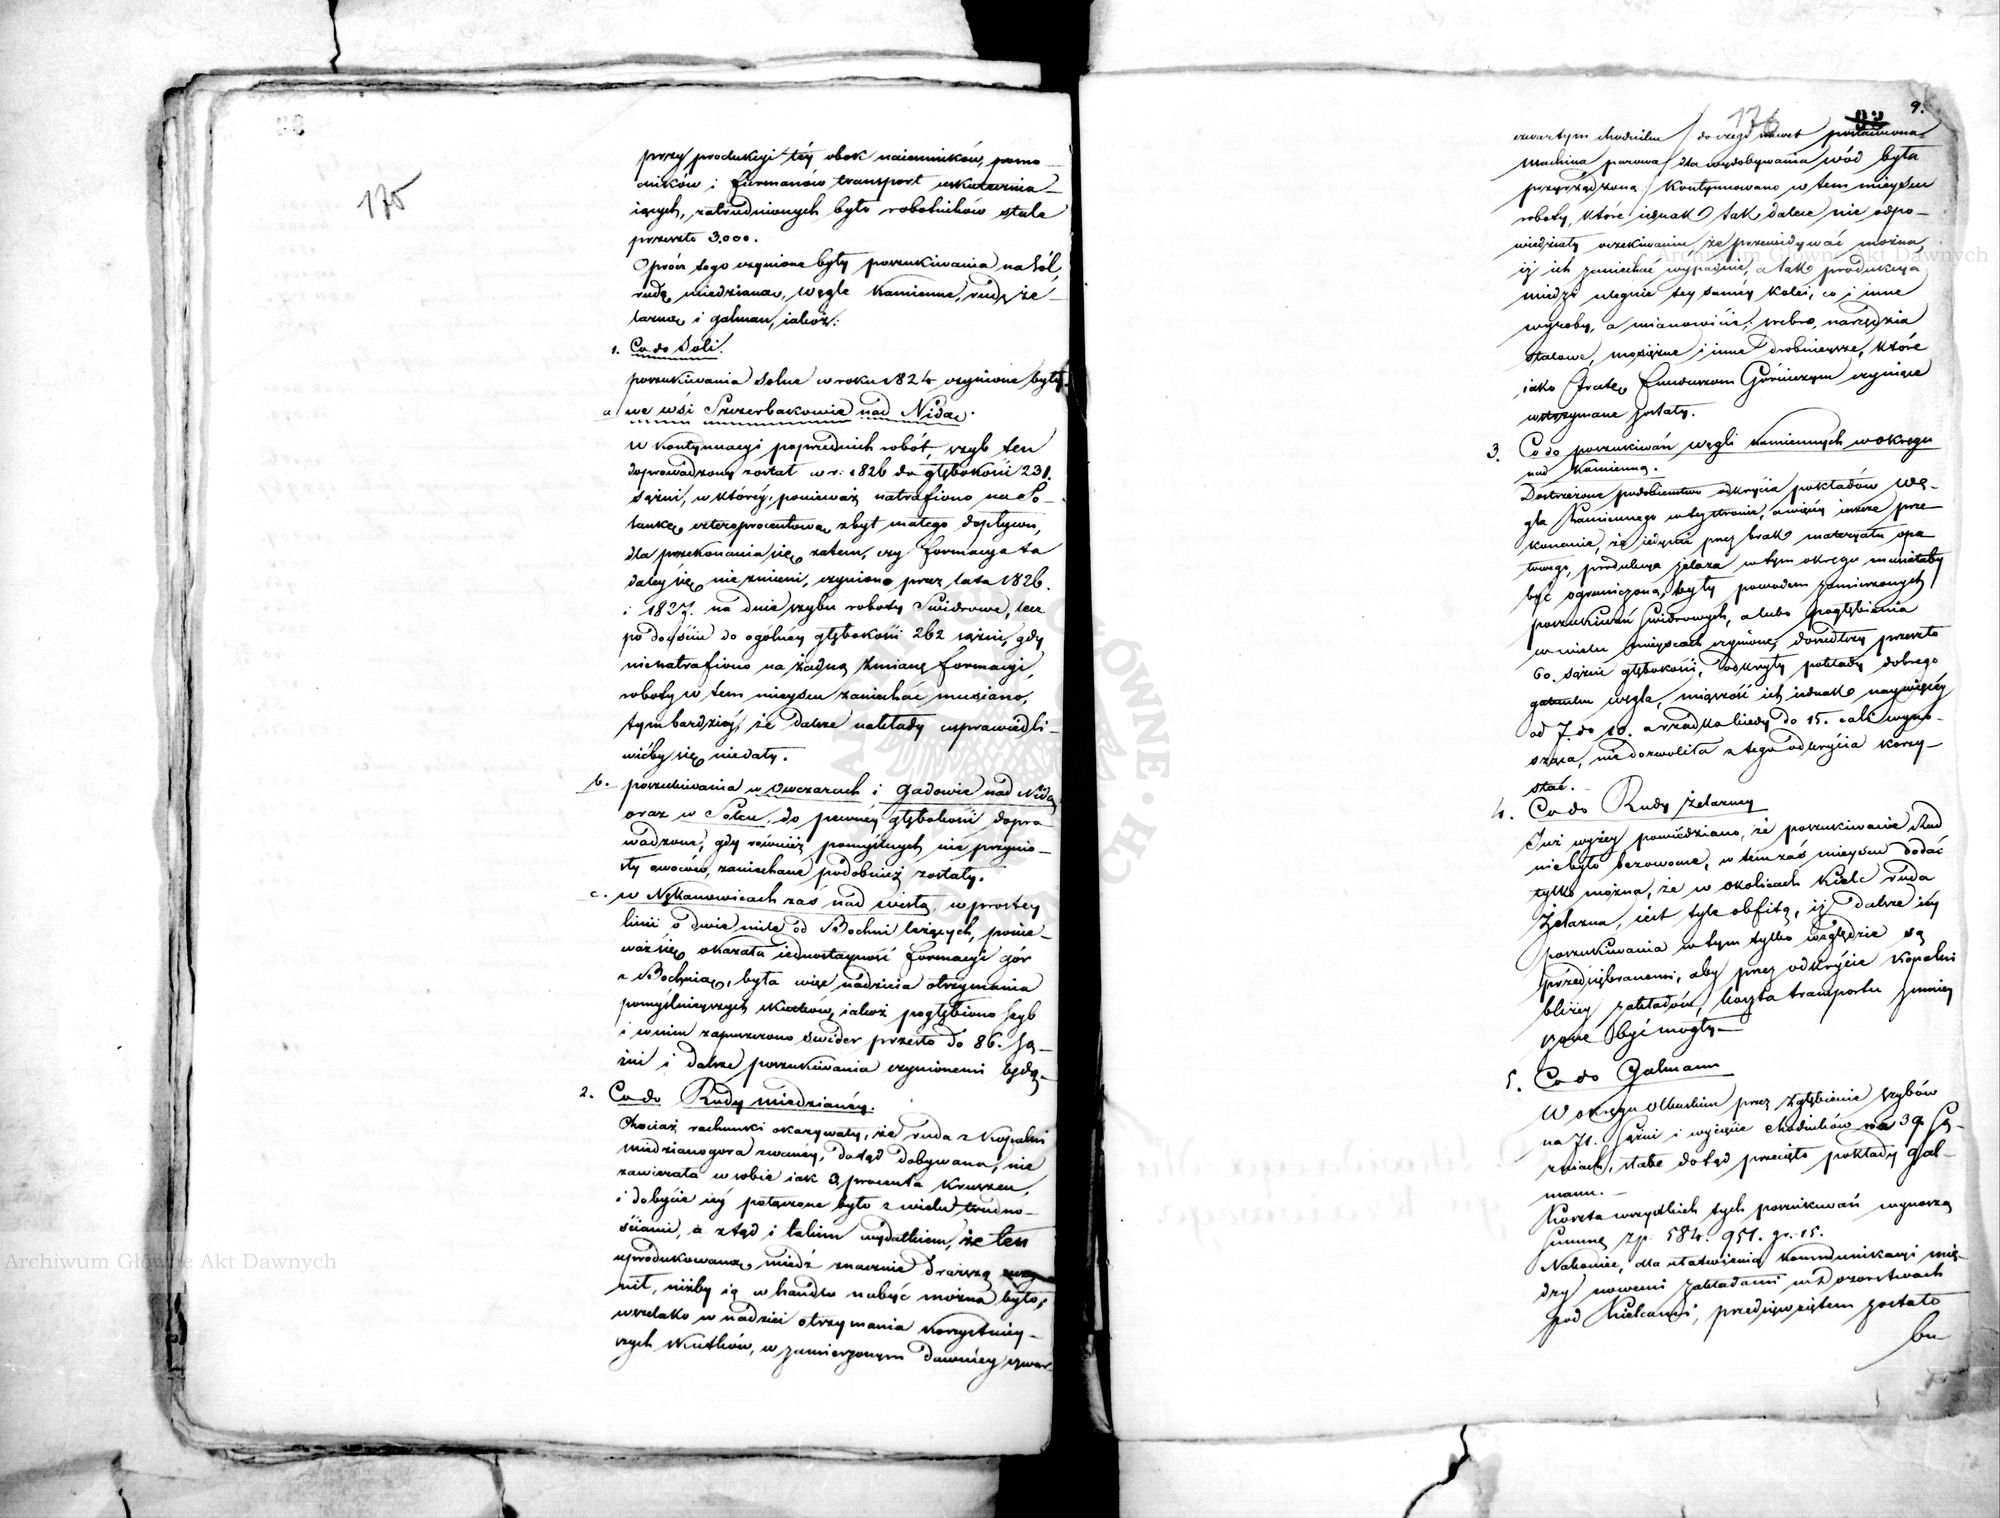 175
przy produkcyi téy obok naiemników, pomo-
cników i furmanów transport uskutecznia-
iących, zatrudnionych było robotników stale
przeszło 3.000.
Oprócz tego czynione były poszukiwania na sól,
rudę miedzianą, węgle kamienne, rudę że-
lazną i galman, iakoż:
1. Co do Soli.
poszukiwania solne w roku 1824 czynione były
a we wsi Szczerbakowie nad Nidą.
W kontynuacyi poprzednich robót, szyb ten
doprowadzony został w r: 1826 do głębokości 231.
sążni, w którey, ponieważ natrafiono na So-
lankę czteroprocentową zbyt małego dopływu,
dla przekonania się zatem, czy formacya ta
daley się nie zmieni, czyniono przez lata 1826.
i 1827. na dnie szybu roboty Swidrowe, lecz
po doyściu do ogólney głębokości 262 sążni, gdy
nienatrafiono na żadną zmianę formacyi,
roboty w tem mieyscu zaniechać musiano,
tymbardziéy, że dalsze nakłady usprawiedli-
wićby się niedały.
b. poszukiwania w Owczarach i Gadowie nad Nidą
oraz w Solcu, do pewnéy głębokości dopro
wadzone, gdy również pomyślnych nie przynio-
sły owoców, zaniechane podobnież zostały.
c. w Nękanowicach zaś nad Wisłą, w prostey
linii o dwie mile od Bochni leżących, ponie-
waż się okazała iednostayność formacyi gór
z Bochnią, była więc nadzieia otrzymania
pomyślnieyszych skutków, iakoż pogłębiono szyb
i w nim zapuszczono świder przeszło do 86. są-
żni i dalsze poszukiwania czynionemi będą.
2. Co do Rudy miedzianéy.
Chociaż rachunki okazywały, że ruda z kopalni
miedzianogóra zwanéy, dotąd dobywana, nie
zawierała w sobie iak 3 procenta kruszcu,
i dobycie iéy połączone było z wielu trudno-
ściami, a ztąd i takim wydatkiem, że ten
uprodukowaną miedź znacznie droższą czy
nił, niżby ią w handlu nabyć można było;
wszelako w nadziei otrzymania korzystniey-
szych skutków, w zamierzonym dawniey czwar
176
9.
czwartym chodniku /: do czego nawet postawiona
Machina parowa dla wydobywania wód była
przyrządzona :/ kontynuowano w tem mieyscu
roboty, które iednak tak dalece nie odpo-
wiedziały oczekiwaniu, że przewidywać można,
iż ich zaniechać wypadnie, a tak produkcya
miedzi ulegnie tey saméy kolei, co i inne
wyroby, a mianowicie: srebro, narzędzia
stalowe, mosiężne i inne drobnieysze, które
iako stratę Funduszom Górniczym czyniące
wstrzymane zostały.
3. Co do poszukiwań węgli kamiennych w okręgu
nad Kamienną.
Dostrzeżone podobieństwo odkrycia pokładów wę-
gla Kamiennego w tey stronie, a więcey ieszcze prze
konanie, że iedynie przez brak materyału opa
łowego, produkcya żelaza w tym okręgu musiałaby
być ograniczoną, były powodem zamierzonych
poszukiwań swidrowych, a lubo pogłębienia
w wielu mieyscach czynione, doszedłszy przeszło
60. sążni głębokości, odkryły pokłady dobrego
gatunku węgla, miąższość ich iednak naywięcéy
od 7. do 10. a rzadko kiedy do 15. cali wyno-
sząca, niedozwoliła z tego odkrycia korzy-
stać.
4. Co do Rudy żelazney
Już wyżey powiedziano, że poszukiwanie Rud
niebyło bezowocne, w tem zaś mieyscu dodać
tylko można, że w okolicach Kielc ruda
żelazna, iest tyle obfitą, iż dalsze iéy
poszukiwania w tym tylko względzie są
przedsiębranemi, aby przez odkrycie kopalni
bliżey zakładów, koszta transportu zmniey
szone być mogły.
5. Co do Galmanu
W okręgu Olkuskim przez zgłębienie szybów
na 71. sążni i wycięcie chodników na 39 są-
żniach, słabe dotąd przecięto pokłady gal-
manu.
Koszta wszystkich tych poszukiwań wynoszą
Summę zp. 584. 951. gr. 15.
Nakoniec, dla ułatwienia kommunikacyi mię-
dzy nowemi zakładami w Dozorstwach
pod Kielcami, przedsięwziętem zostało
bu
Archiwum Główne Akt Dawnych
Archiwum Główne Akt Dawnych